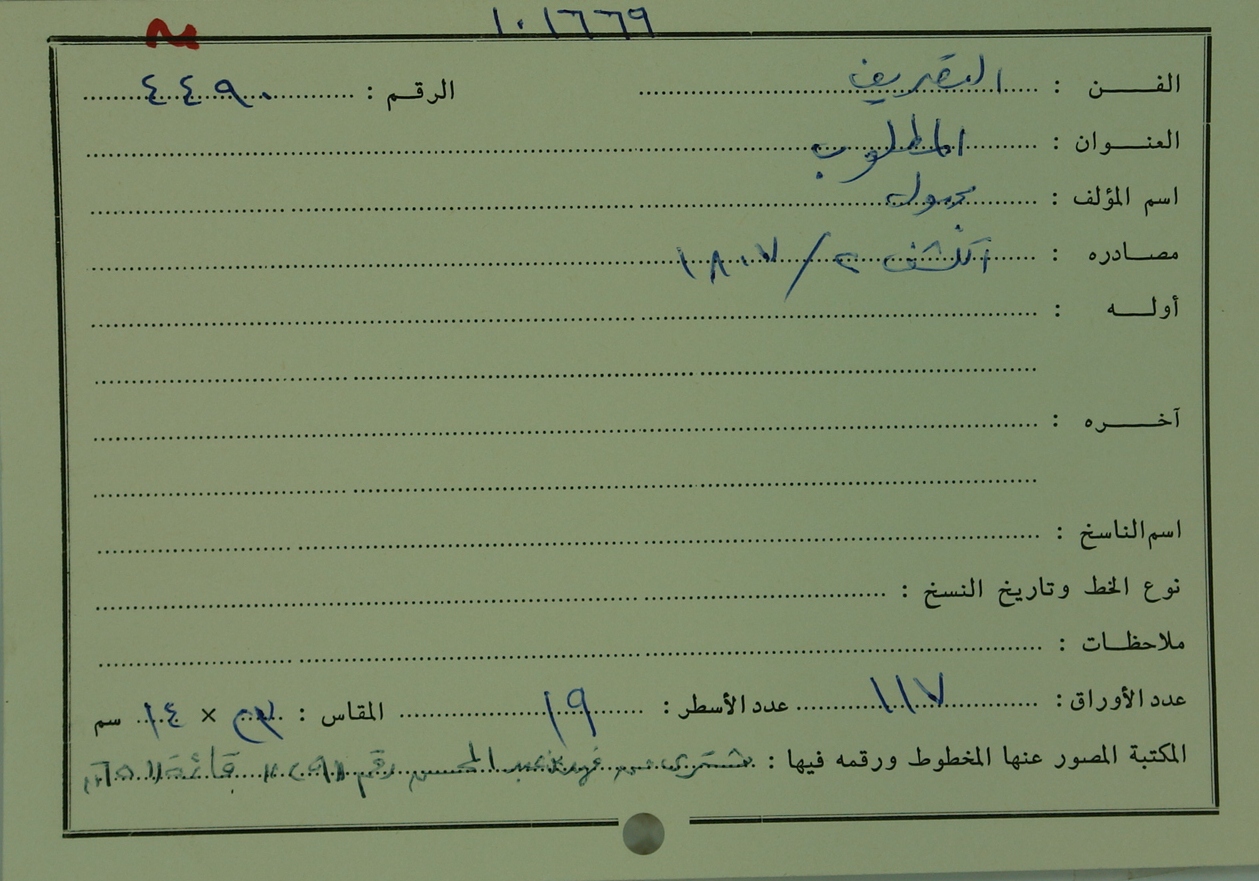 ١٠١٦٦٩
الفن : التصريف الرقم : ٤٤٩٠
العنوان : المطلوب
اسم المؤلف : مجهول
مصادره : الكشف ٢/١٨٠٧
أوله :
آخره :
اسم الناسخ :
نوع الخط وتاريخ النسخ :
ملاحظات :
عدد الأوراق : ١١٧ عدد الأسطر : ١٩ المقاس : × ١٤ سم
المكتبة المصور عنها المخطوط ورقمه فيها : مشترى من المحسن رقم قائمة